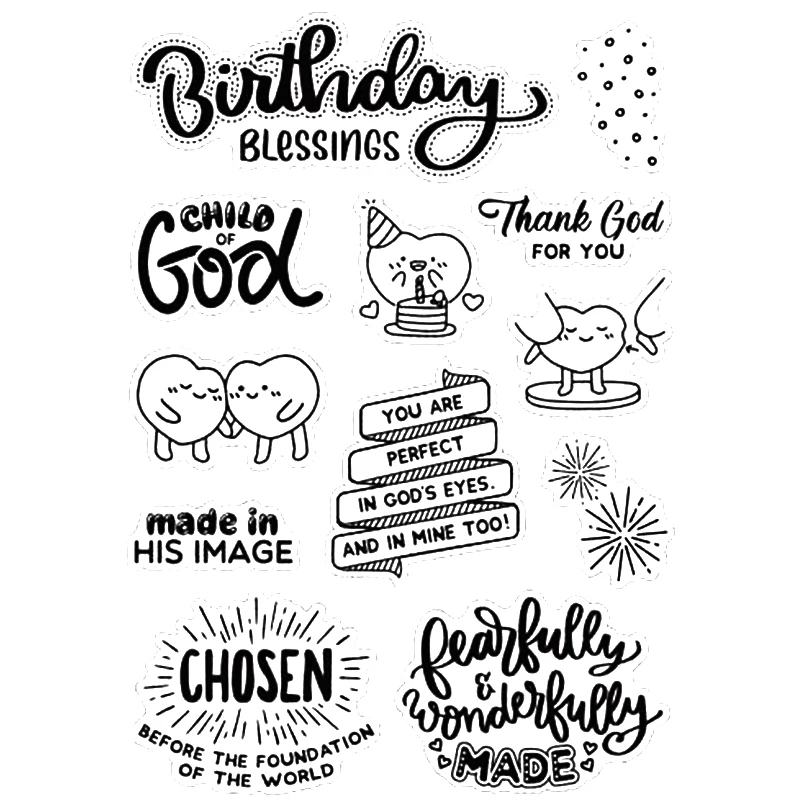 Birthday
BLESSINGS
CHILD
OF
God
Thank God
FOR YOU
YOU ARE
PERFECT
IN GOD'S EYES.
AND IN MINE TOO!
made in
HIS IMAGE
CHOSEN
BEFORE THE FOUNDATION
OF THE WORLD
fearfully
&
wonderfully
MADE